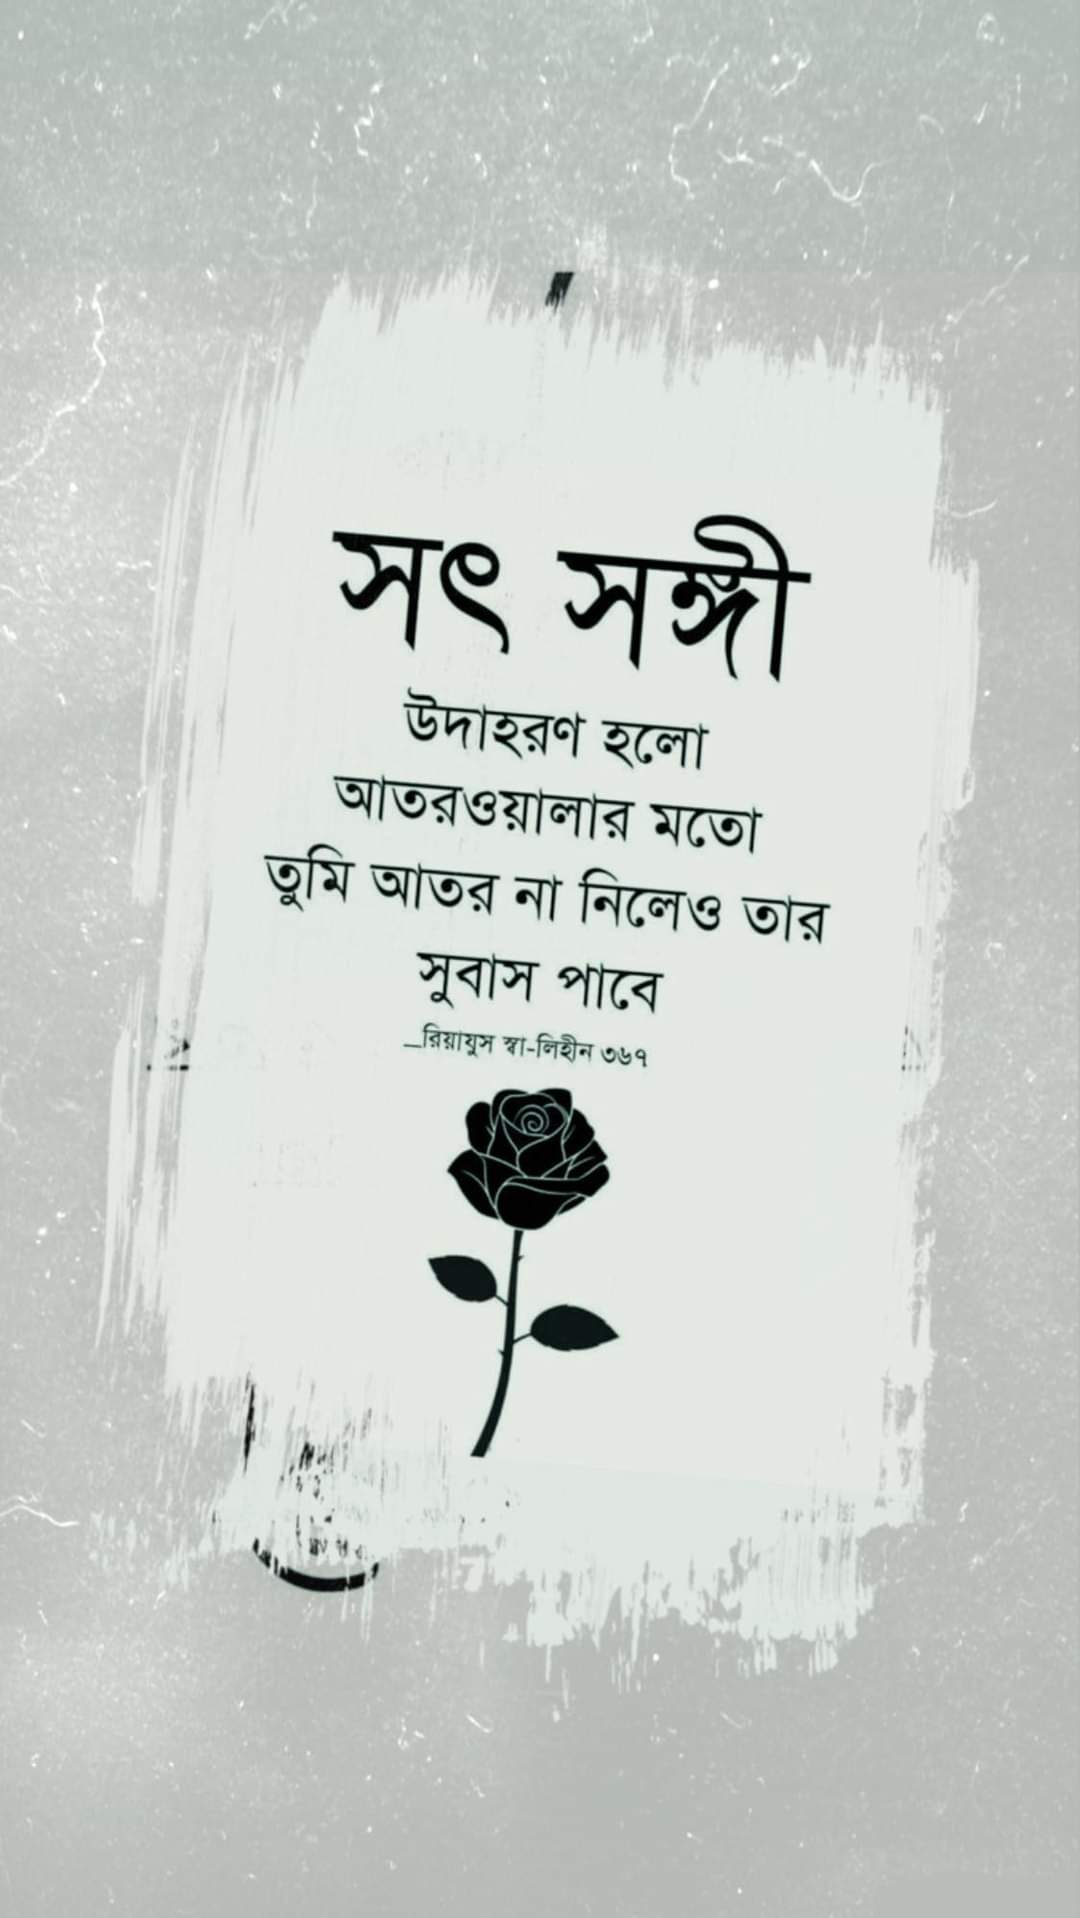 সৎ সঙ্গী
উদাহরণ হলো
আতরওয়ালার মতো
তুমি আতর না নিলেও তার
সুবাস পাবে
_রিয়াযুস স্বা-লিহীন ৩৬৭